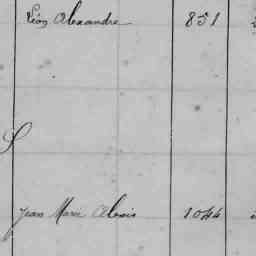 Léon Alexandre 851
S
Jean Marie Alexis 1044